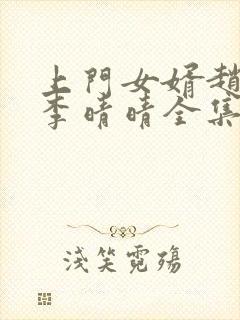 上門女婿趙
李晴晴全集
淺笑霓殤